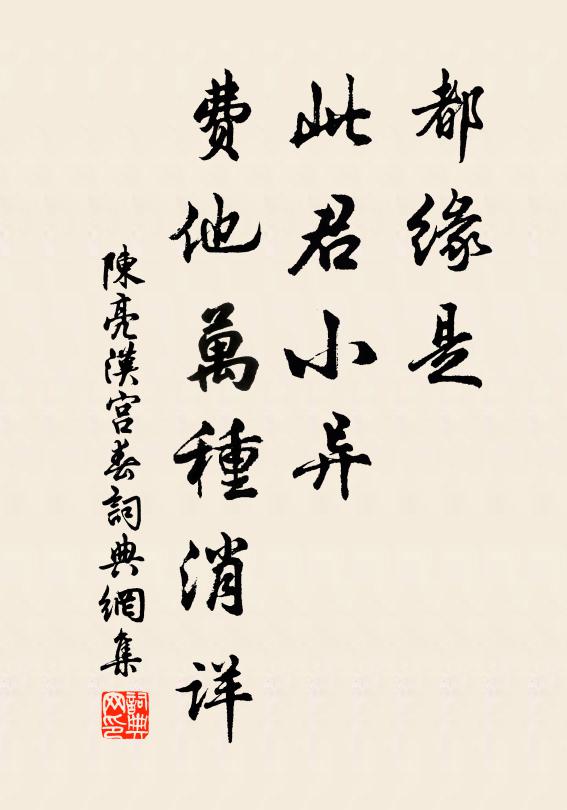 都緣是
此君小异
費他萬種消詳
陳亮漢宮春詞典網集
詞典网印